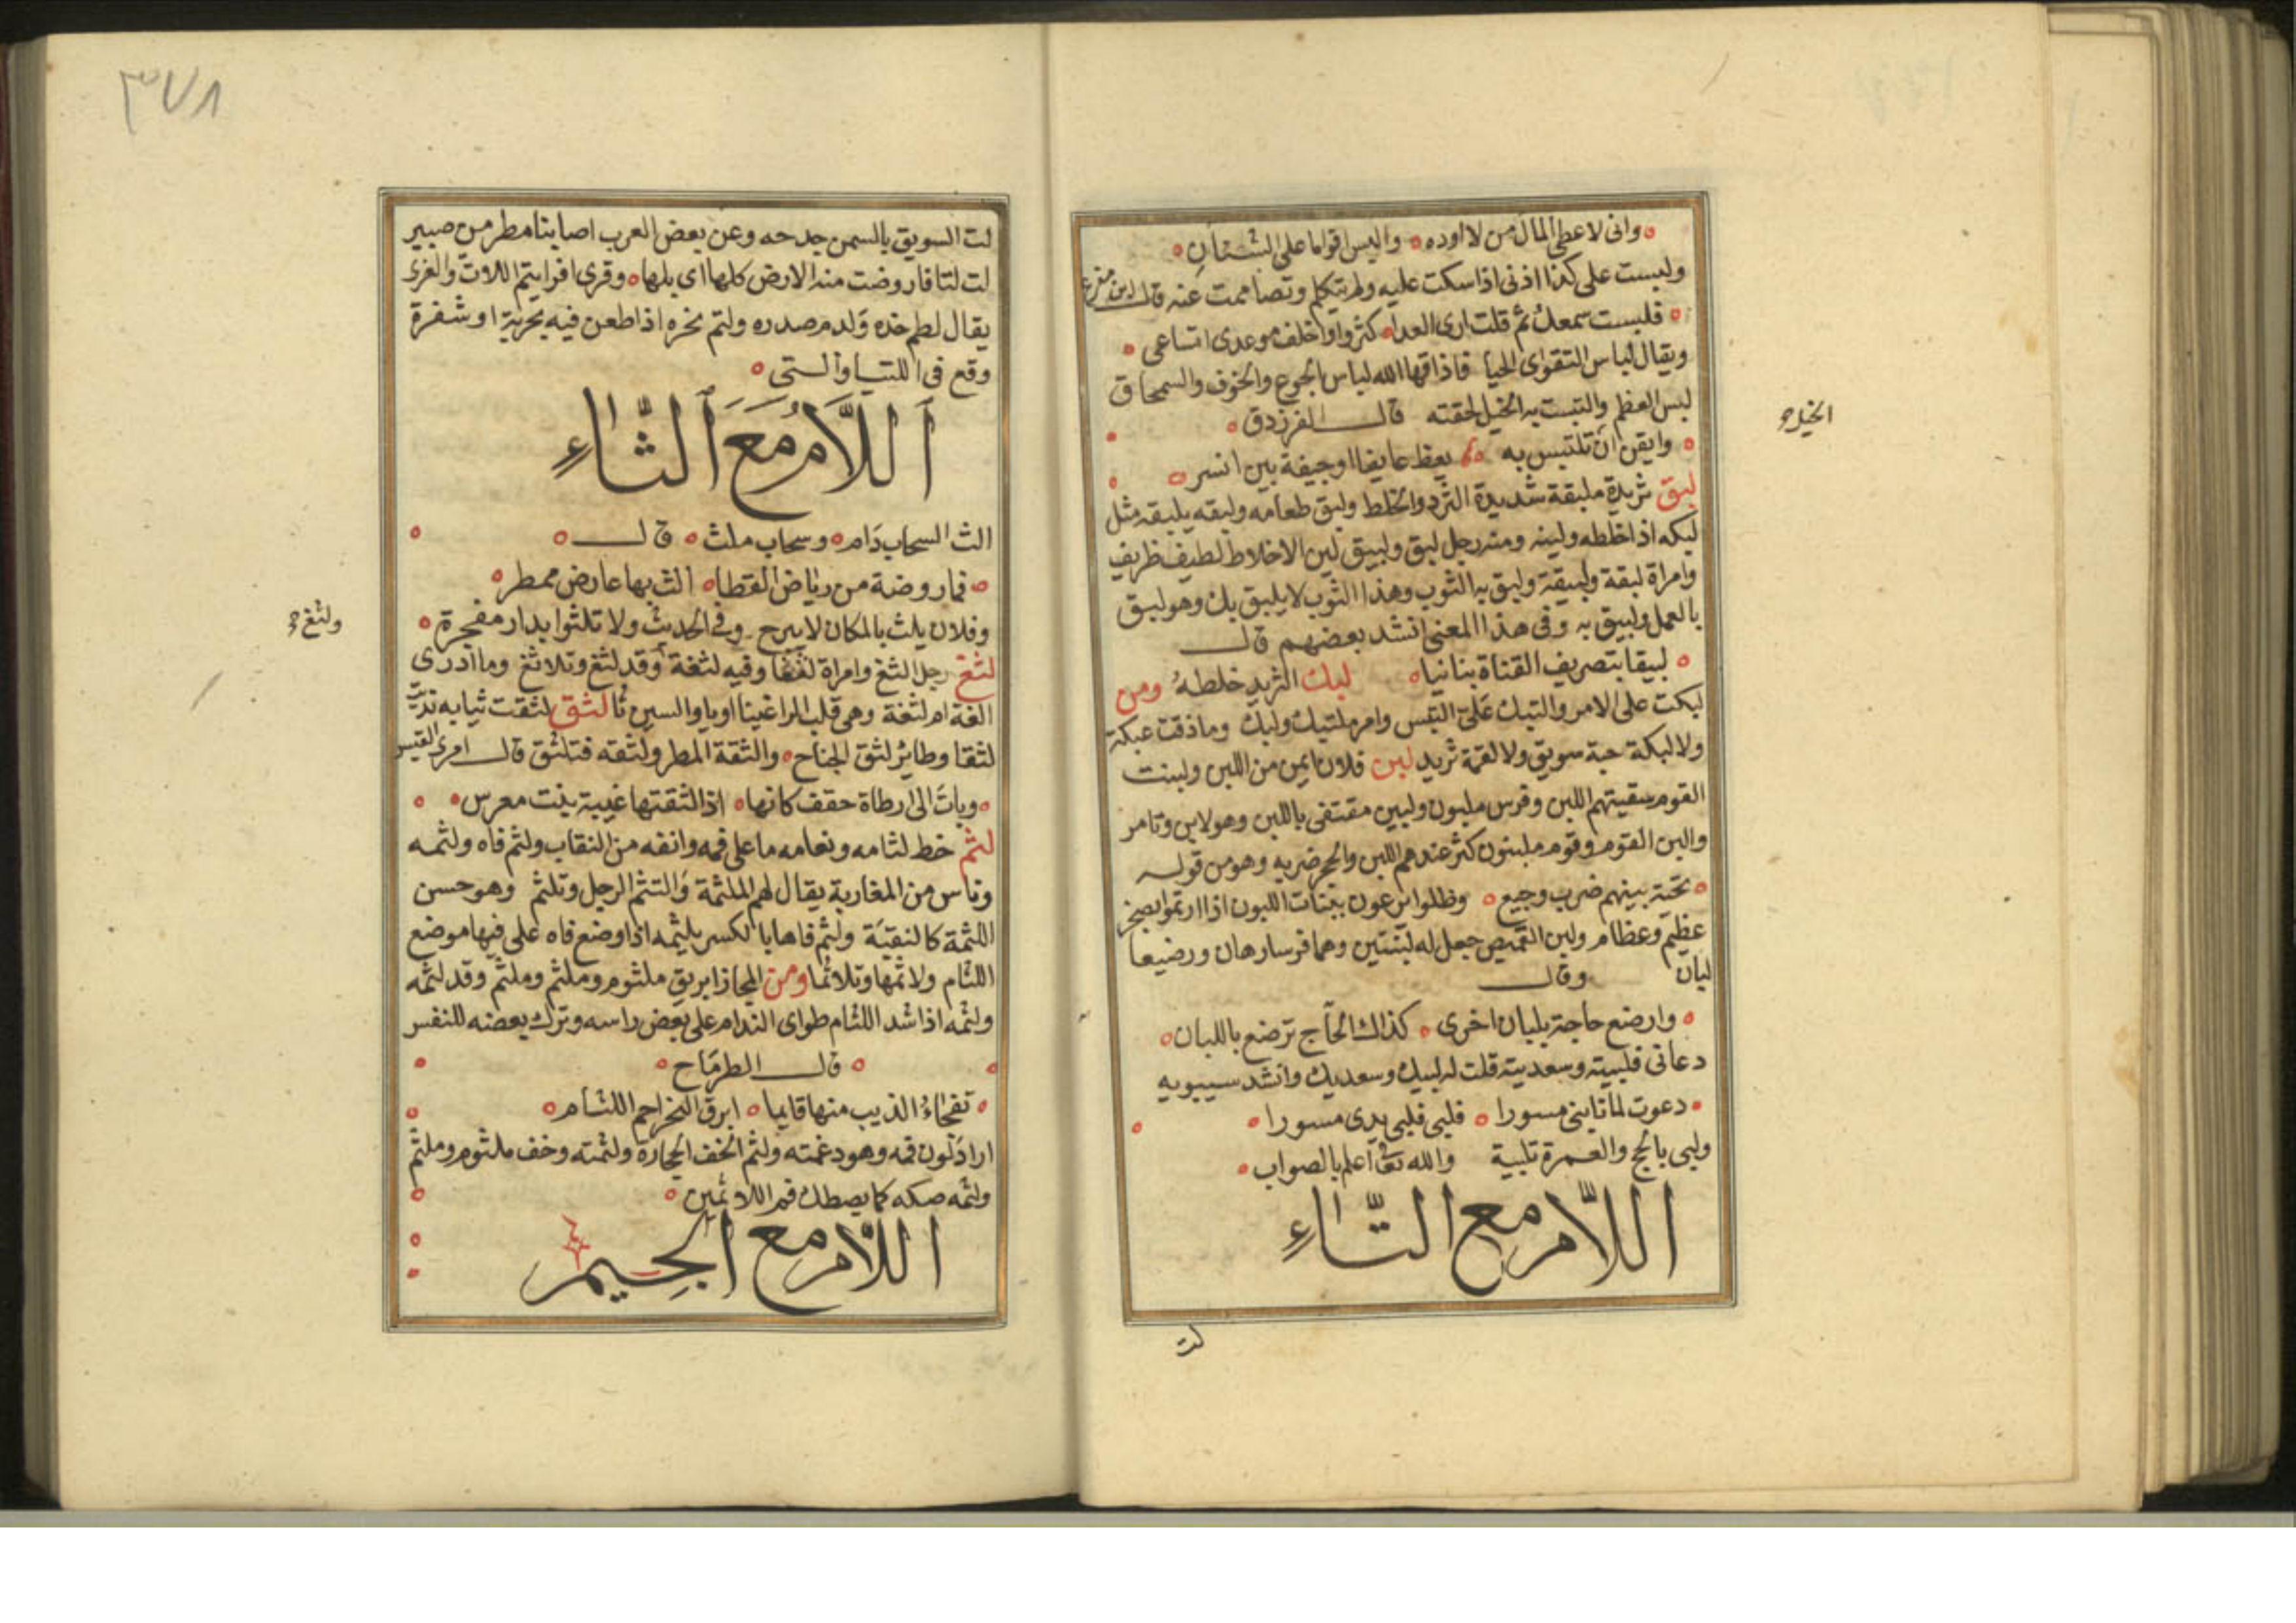 وانى لاعطى المال من لا اوده والبس اقواما على الشنآن
ولبست على كذا اذنى اذا سكت عليه ولم تتكلم وتصاممت عنه قال ابن مفرغ
فلبست سمعك ثم قلت ارى العدا كثروا واخلف موعدى اشياعى
ويقال لباس التقوى الحيا فاذاقها الله لباس الجوع والخوف والسمحاق
لبس العظم والتبست به الخيل لحقته قال الفرزدق
الخيل
وايقن ان تلتبس به يعظ عايفا اوجيفة بين انسر
لبق ثريدة ملبقة شديدة الثرد والخلط ولبق طعامه ولبقه يلبقه مثل
لبكه اذا خلطه ولينه ومنه رجل لبق ولبيق لين الاخلاط لطيف ظريف
وامراة لبقة ولبيقة ولبق به الثوب وهذا الثوب لا يلبق بك وهو لبق
بالعمل ولبيق به وفى هذا المعنى انشد بعضهم قال
لبيقا بتصريف القناة بنانيا لبك الثريد خلطه ومن
لبكت على الامر والتبك على التبس وامر ملتبك ولبك وما ذقت عبكة
ولا لبكة حبة سويق ولا لقمة ثريد لبن فلان من اللبن ولبنت
القوم سقيتهم اللبن وفرس ملبون ولبين مقتفى باللبن وهو لابن وتامر
والبن القوم وقوم ملبنون كثر عندهم اللبن وهو من قوله
تحية بينهم ضرب وجيع وظلوا يرعون ببنات اللبون اذا ارتموا بصخر
عظيم وعظام ولبن القميص جعل له لبنتين وهما فرسا رهان ورضيعا
لبان وقال
وارضع حاجة بلبان اخرى كذاك الحاج ترضع باللبان
دعانى فلبيته وسعديته قلت له لبيك وسعديك وانشد سيبويه
دعوت لما نابنى مسورا فلبى فلبى يدى مسورا
ولبى بالحج والعمرة تلبية والله تعالى اعلم بالصواب
اللام مع التاء
لت
٣٧٨
لت السويق بالسمن جدحه وعن بعض العرب اصابنا مطر من صبير
لت لتا فاروضت منه الارض كلها اى بلها وقرى افرايتم اللات والعزى
يقال لطم خده ولدم صدره ولتم نحره اذا طعن فيه بحربة او شفرة
وقع فى اللتيا والتى
اللام مع الثاء
الث السحاب دام وسحاب ملث قال
فما روضة من رياض القطا الث بها عارض ممطر
وفلان يلث بالمكان لا يبرح وفى الحديث ولا تلثوا بدار مفجرة
ولثغ
لثغ رجل الثغ وامراة لثغا وفيه لثغة وقد لثغ وتلاثغ وما ادرى
الغة ام لثغة وهى قلب الرا غينا او يا والسين ثا لثق لثقت ثيابه
لثقا وطاير لثق الجناح والثقة المطر ولثقه فتلثق قال امرى القيس
وبات الى ارطاة حقف كانها اذا الثقتها غبية بيت معرس
لثم حط لثامه ما على فمه وانفه من النقاب ولثم فاه ولثمه
وناس من المغاربة يقال لهم الملثمة والتثم الرجل وتلثم وهو حسن
اللثمة كالنقبة ولثم فاها بالكسر يلثمه اذا وضع فاه على فيها موضع
اللثام ولاثمها وتلاثما ومن المجاز ابريق ملثوم وملثم وملثم وقد لثمه
ولثمه اذا شد اللثام على بعض راسه وترك بعضه للنفس
قال الطرماح
الذيب منها قايما ابرق اللثام
اراد لون فمه وهو دغمته ولثم الخف الحجارة ولثمته وخف ملثوم وملثم
ولثمه صكه كما يصطك فم اللاثمين
اللام مع الجيم